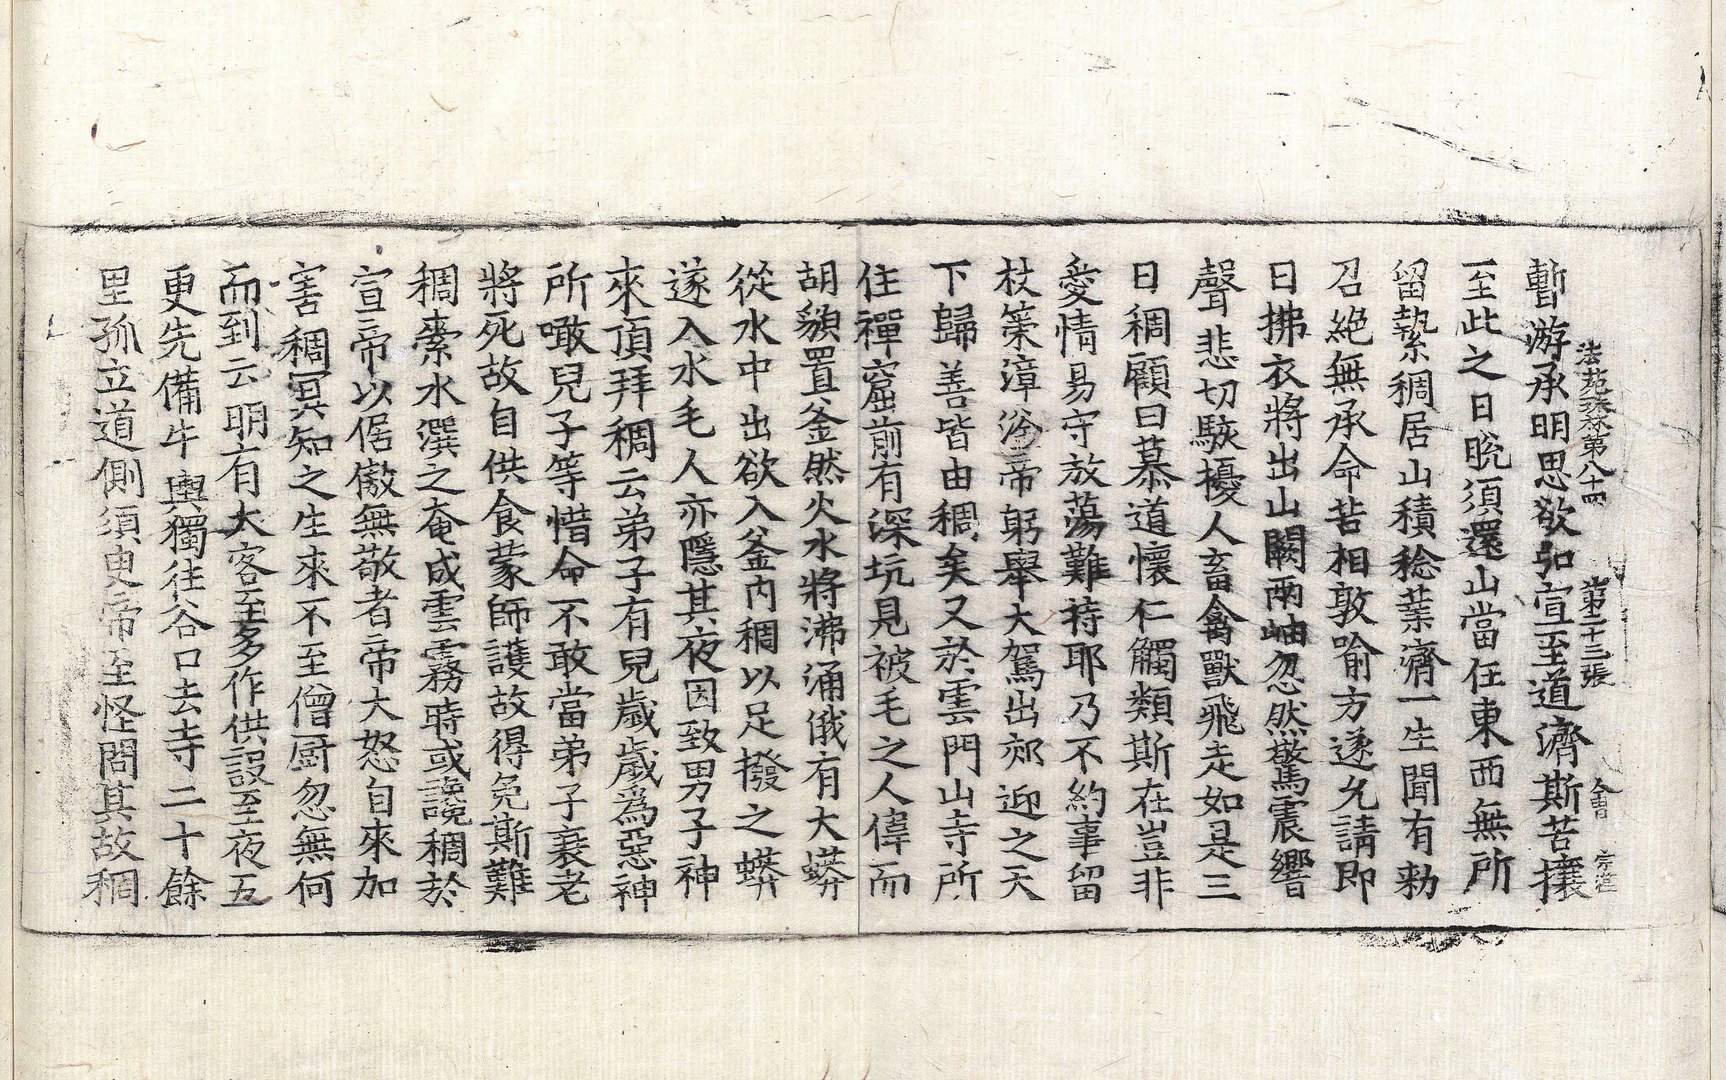 法苑珠林第八十四 第二十三張 會
暫游承明思欲弘宣至道濟斯苦攘
至此之日晚須還山當任東西無所
留縶稠居山積稔業濟一生聞有勅
召絕無承命苦相敦喻方遂允請即
日拂衣將出山闕兩岫忽然驚震響
聲悲切駭擾人畜禽獸飛走如是三
日稠顧曰慕道懷仁觸類斯在豈非
愛情易守放蕩難持耶乃不約事留
杖策漳滏帝躬舉大駕出郊迎之天
下歸善皆由稠矣又於雲門山寺所
住禪窟前有深坑見被毛之人偉而
胡貌置釜然火水將沸涌俄有大蟒
從水中出欲入釜內稠以足撥之蟒
遂入水毛人亦隱其夜因致男子神
來頂拜稠云弟子有兒歲歲為惡神
所噉兒子等惜命不敢當弟子衰老
將死故自供食蒙師護故得免斯難
稠索水潠之奄成雲霧時或讒稠於
宣帝以倨傲無敬者帝大怒自來加
害稠冥知之生來不至僧厨忽無何
而到云明有大客至多作供設至夜五
更先備牛輿獨往谷口去寺二十餘
里孤立道側須臾帝至怪問其故稠